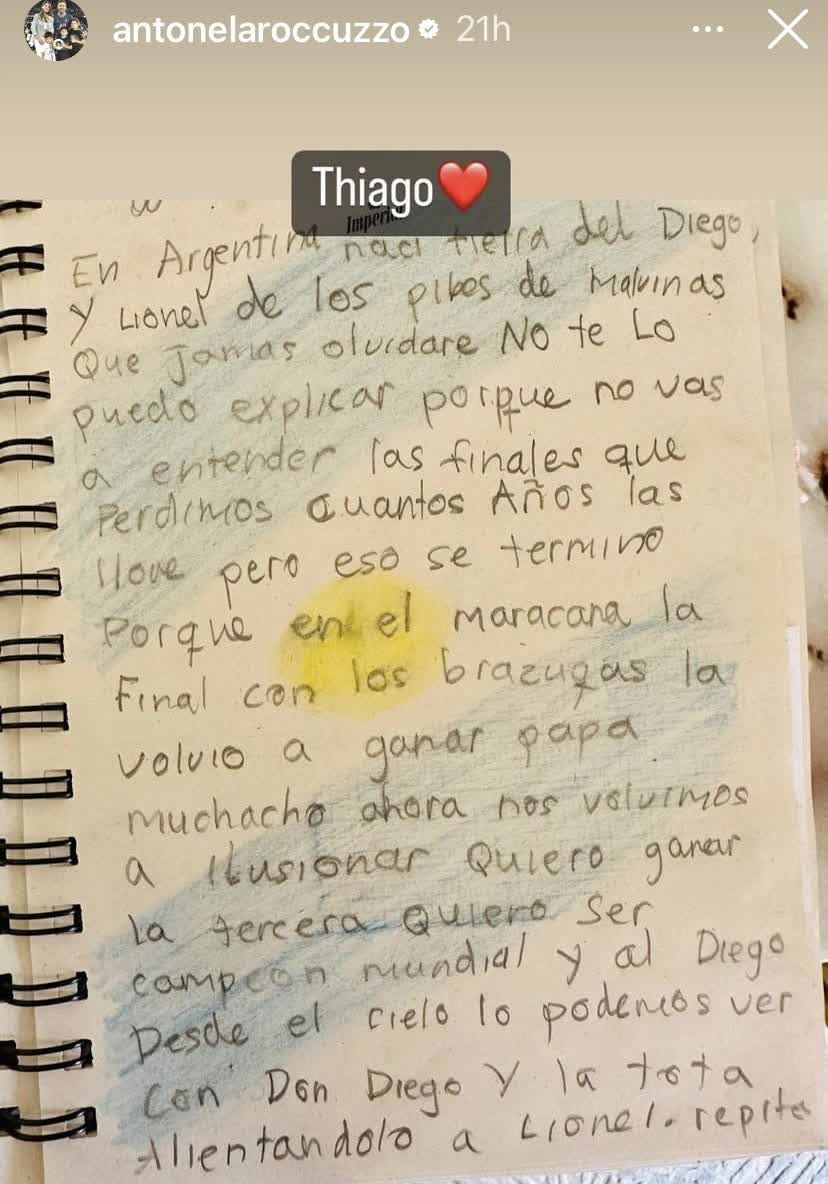 antonelaroccuzzo 21h
Thiago❤️
En Argentina naci tierra del Diego,
y Lionel de los pibes de Malvinas
Que Jamas olvidare No te Lo
puedo explicar porque no vas
a entender las finales que
Perdimos cuantos Años las
llore pero eso se termino
Porque en el maracana la
Final con los brazugas la
volvio a ganar papa
muchacho ahora nos volvimos
a ilusionar Quiero ganar
la tercera Quiero Ser
campeon mundial y al Diego
Desde el cielo lo podemos ver
con Don Diego y la tota
Alientandolo a Lionel. repite